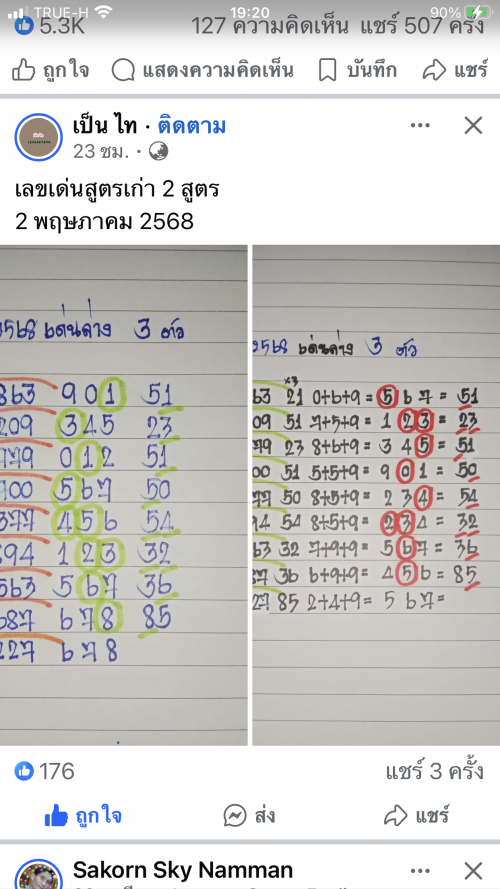 TRUE-H 19:20 90%
5.3K 127 ความคิดเห็น แชร์ 507 ครั้ง
ถูกใจ แสดงความคิดเห็น บันทึก แชร์
เป็น ไท · ติดตาม
23 ชม. ·
เลขเด่นสูตรเก่า 2 สูตร
2 พฤษภาคม 2568
2568 เด่นล่าง 3 ตัว
863 901 51
209 345 23
779 012 51
700 567 50
377 456 54
894 123 32
563 567 36
687 678 85
227 678
2568 เด่นล่าง 3 ตัว
×3
63 21 0+6+9= 5 6 7 = 51
09 51 7+5+9= 1 2 3 = 23
79 23 8+6+9= 3 4 5 = 51
00 51 5+5+9= 9 0 1 = 50
77 50 8+5+9= 2 3 4 = 54
94 54 8+5+9= 2 3 4 = 32
63 32 7+9+9= 5 6 7 = 36
87 36 6+9+9= 4 5 6 = 85
27 85 2+4+9= 5 6 7 =
176 แชร์ 3 ครั้ง
ถูกใจ ส่ง แชร์
Sakorn Sky Namman